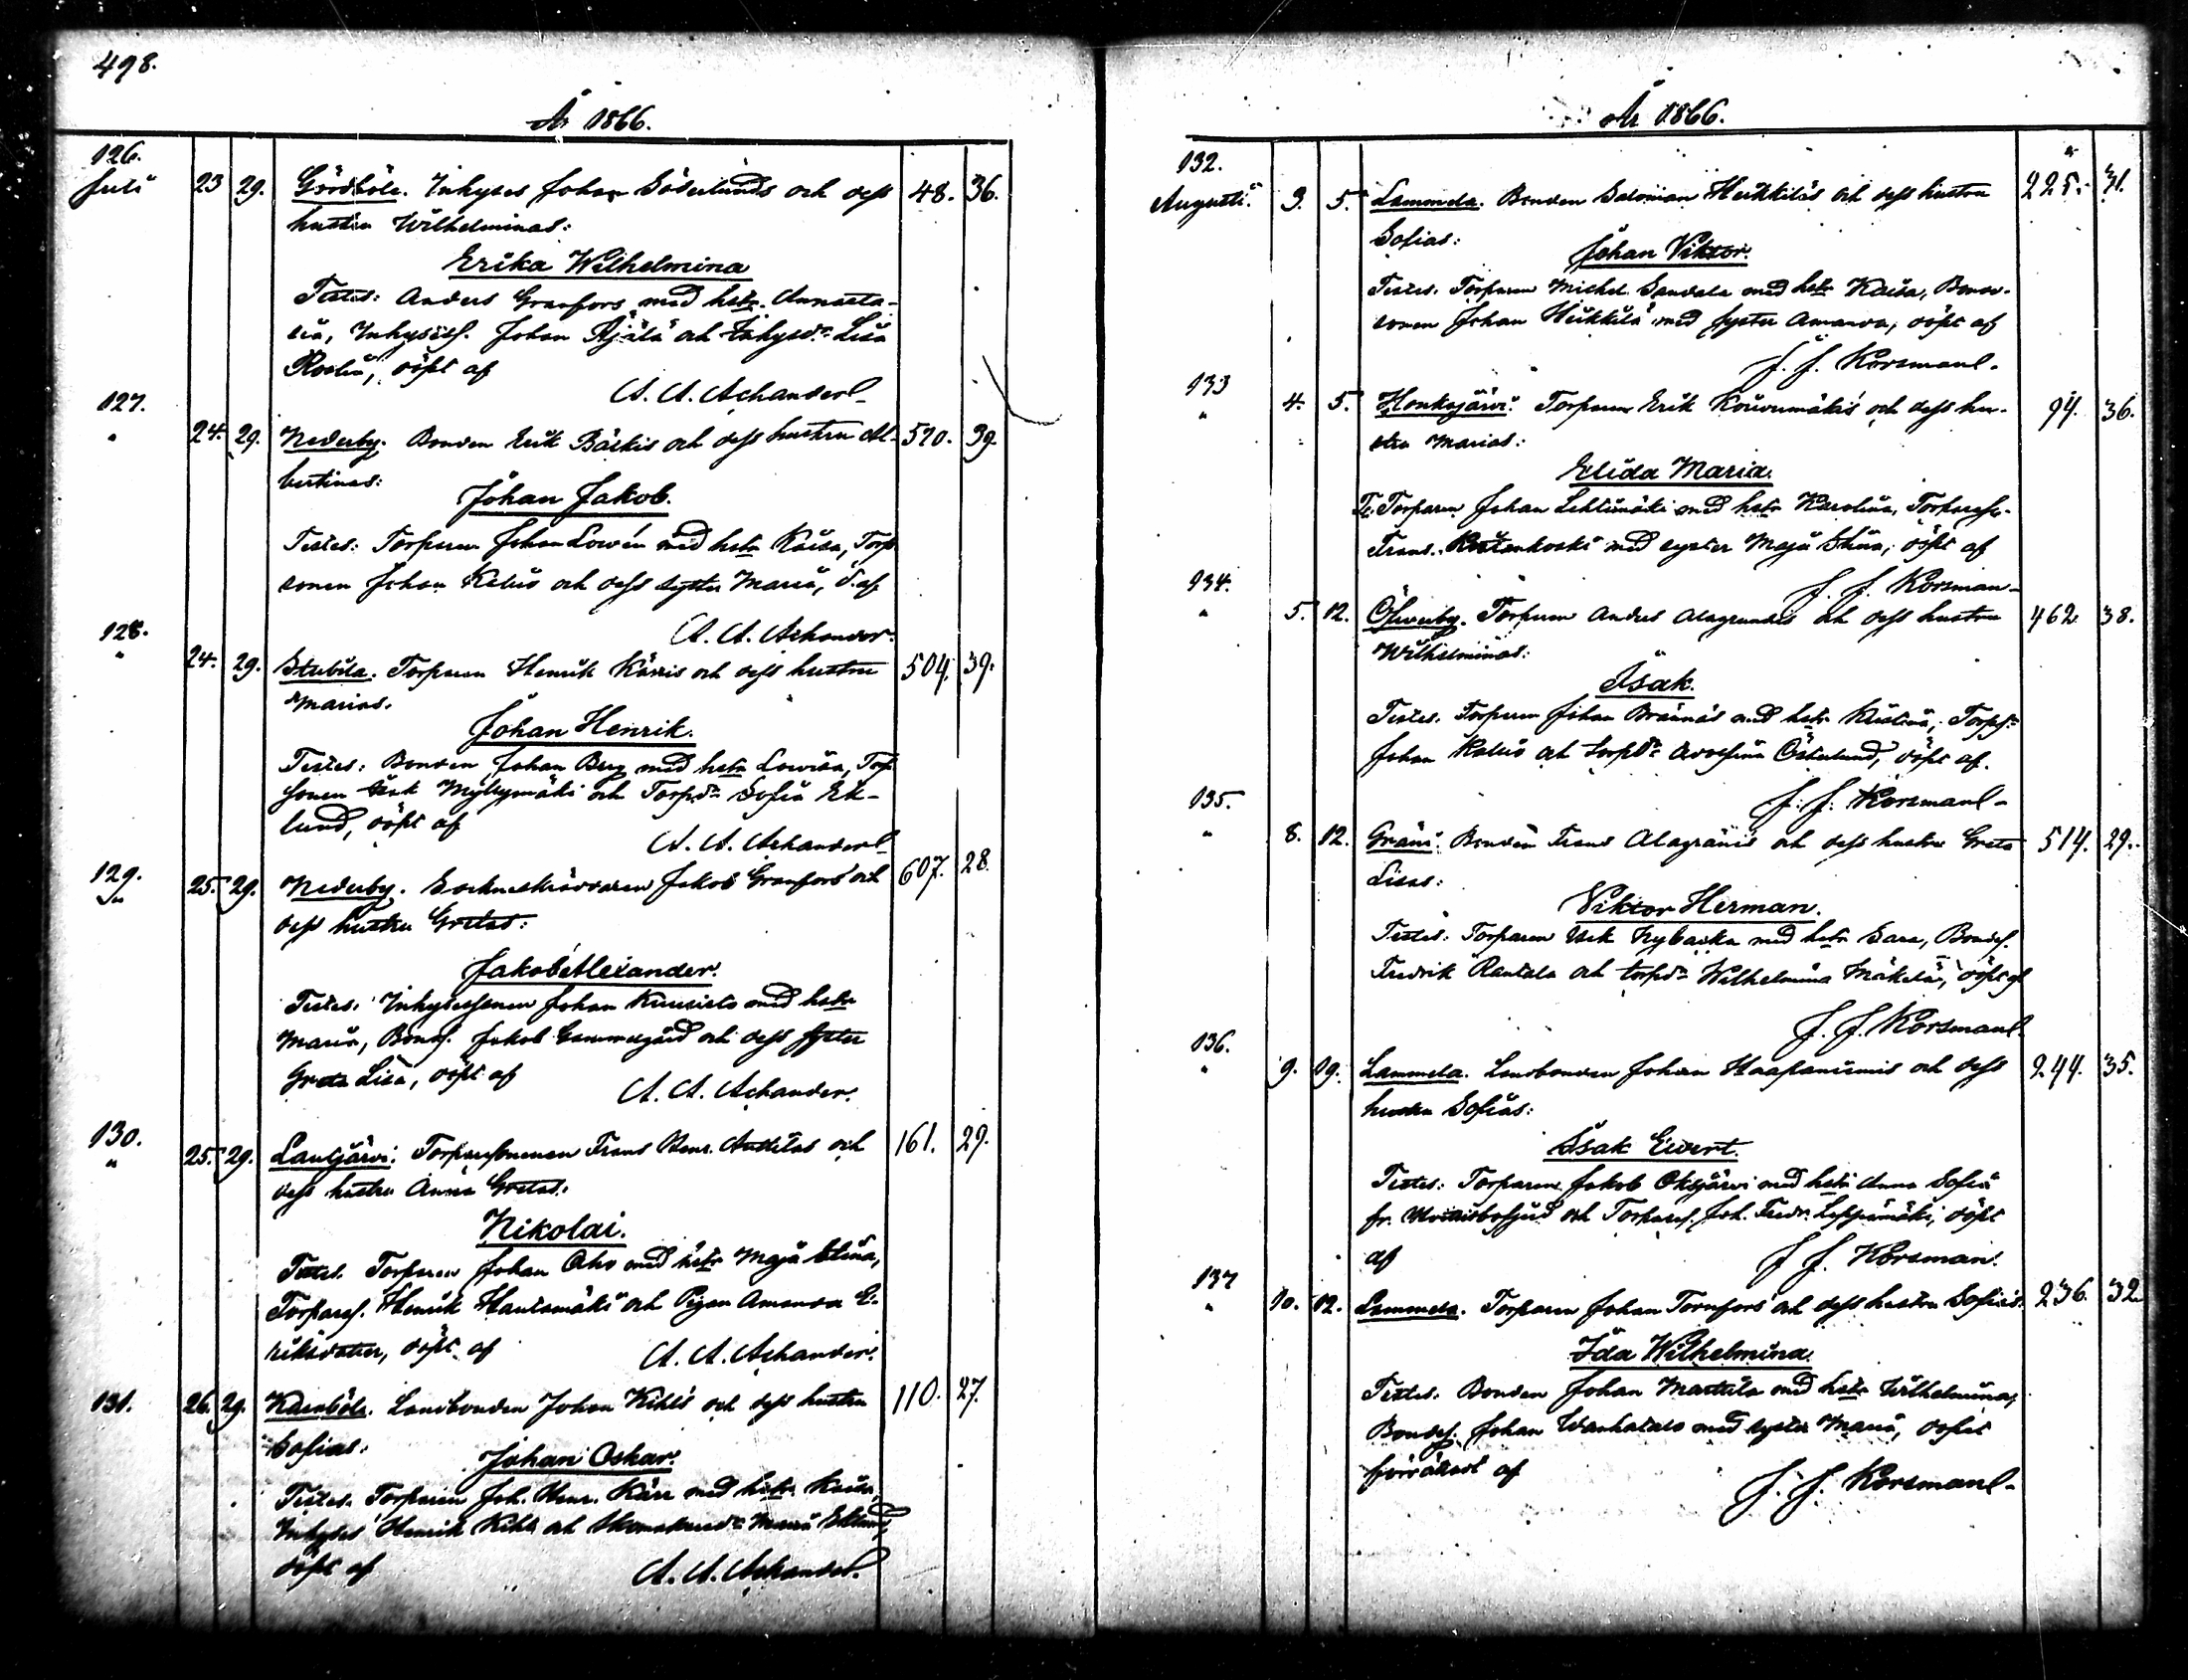 498.
År 1866.
126.
Juli 23 29. Gördböle. Inhyses Johan Söderlunds och dess 48. 36.
hustru Wilhelminas:
Erika Wilhelmina
Testes: Anders Granfors med hstr. Annasta-
sia, Inhysess. Johan Äjälä och Inhysdr. Lisa
döpt af
A. A. Achander
127.
" 24. 29. Nederby. Bonden Erik Bäckis och dess hustru Al- 570. 39
bertinas:
Johan Jakob.
Testes: Torparen Johan Lowén med hstr Kaisa, Torp
sonen Johan Kelus och dess syster Maria, d. af
A. A. Achander.
128.
" 24. 29. Stubila. Torparen Henrik Kärris och dess hustru 504. 39.
Marias.
Johan Henrik.
Testes: Bonden Johan Berg med hstr Lowisa, Torp
sonen Isak Myllymäki och Torpdr Sofia Ek-
lund, döpt af
A. A. Achander
129.
25. 29. Nederby. Sockneskräddaren Jakob Granfors och 607. 28.
dess hustru Gretas:
Jakob Alexander.
Testes. Inhysessonen Johan Kuusisto med hstr
Maria, Bonds. Jakob Gammelgård och dess syster
Greta Lisa, döpt af
A. A. Achander.
130.
" 25. 29. Lautjärvi. Torparesonen Frans Henr. Anttilas och 161. 29.
dess hustru Anna Gretas.
Nikolai.
Testes. Torparen Johan Oho med hstr Maja Stina,
Torpares. Henrik Hautamäki och Pigan Amanda E-
riksdotter, döpt af
A. A. Achander.
131. 26. 29. Karböle. Landbonden Johan Kihls och dess hustru 110. 27.
Sofias.
Johan Oskar.
Testes. Torparen Joh. Henr. Kärr med hstr. Kaisa,
Inhyses Henrik Kihl och Maria Eklund,
döpt af
A. A. Achander.
År 1866.
132.
Augusti. 3. 5. Lammela. Bonden Salomon Heikkiläs och dess hustru 225. 31.
Sofias:
Johan Viktor.
Testes. Torparen Michel Sandala med hstr Kaisa, Bonde-
sonen Johan Heikkilä med syster Amanda, döpt af
J. J. Korsman.
133
" 4. 5. Honkajärvi. Torparen Erik Kouvumäkis och dess hu- 94. 36.
stru Marias:
Elida Maria.
Te. Torparen Johan Lehtimäki med hstr Karolina, Torpares.
Frans. med syster Maja Stina, döpt af
J. J. Korsman
134.
" 5. 12. Öfverby. Torparen Anders Alagrundis och dess hustru 462. 38.
Wilhelminas:
Isak.
Testes. Torparen Johan Brännäs med hstr Kristina, Torps.
Johan Kelus och torpdr Adolfina Österlund, döpt af.
J. J. Korsman
135.
" 8. 12. Gräni. Bonden Frans Alagränis och dess hustru Greta 514. 29.
Lisas:
Viktor Herman.
Testes: Torparen Isak Nybacka med hstr Sara, Bondes.
Fredrik Rantala och torpdr Wilhelmina Mäkelä, döpt af
J. J. Korsman
136.
" 9. 19. Lammela. Landbonden Johan Haapaniemis och dess 244. 35.
hustru Sofias:
Isak Evert.
Testes: Torparen Jakob Oksjärvi med hstr Anna Sofia
fr. och Torpares. Joh. Fredr. Leppämäki, döpt
af
J. J. Korsman.
137
" 10. 12. Lammela. Torparen Johan Tornfors och dess hustru Sofias. 236. 32.
Ida Wilhelmina.
Testes. Bonden Johan Marttila med hstr Wilhelmina,
Bondes. Johan Wanhatalo med syster Maria, döpt
förrättad af
J. J. Korsman